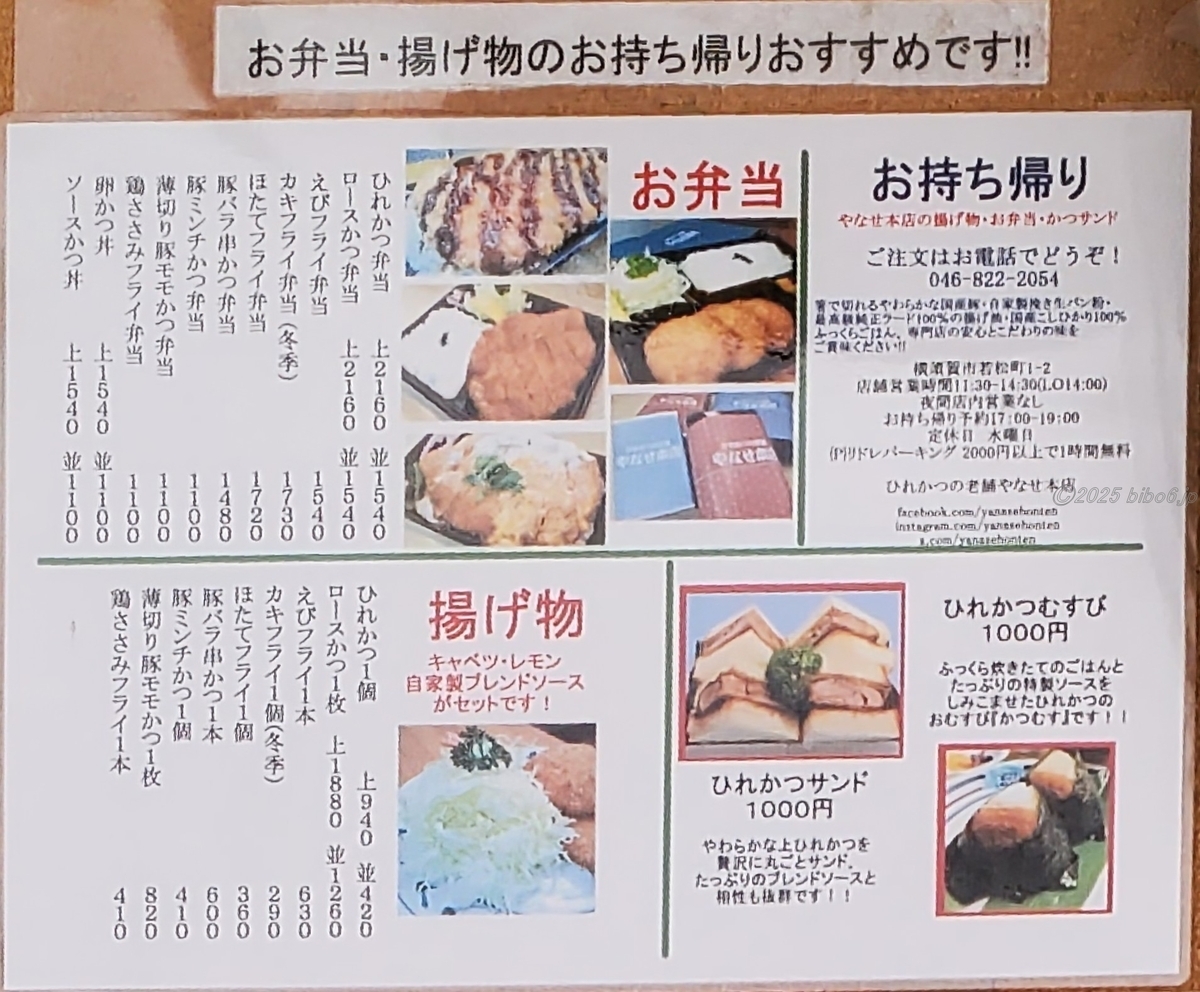 お弁当・揚げ物のお持ち帰りおすすめです!!
お持ち帰り
やなせ本店の揚げ物・お弁当・かつサンド
ご注文はお電話でどうぞ！
046-822-2054
箸で切れるやわらかな国産豚・自家製挽き生パン粉・
最高級純正ラード100%の揚げ油・国産こしひかり100%
ふっくらごはん、専門店の安心とこだわりの味を
ご賞味ください!!
横須賀市若松町1-2
店舗営業時間11:30-14:30(LO14:00)
夜間店内営業なし
お持ち帰り予約17:00-19:00
定休日　水曜日
(P)リドレパーキング 2000円以上で1時間無料
ひれかつの老舗やなせ本店
facebook.com/yanasehonten
instagram.com/yanasehonten
x.com/yanasehonten
お弁当
ひれかつ弁当　上2160 並1540
ロースかつ弁当　上2160 並1540
えびフライ弁当　1540
カキフライ弁当(冬季)　1730
ほたてフライ弁当　1720
豚バラ串かつ弁当　1480
豚ミンチかつ弁当　1100
薄切り豚モモかつ弁当　1100
鶏ささみフライ弁当　1100
卵かつ丼　上1540 並1100
ソースかつ丼　上1540 並1100
揚げ物
キャベツ・レモン
自家製ブレンドソース
がセットです！
ひれかつ1個　上940 並420
ロースかつ1枚　上1880 並1260
えびフライ1本　630
カキフライ1個(冬季)　290
ほたてフライ1個　360
豚バラ串かつ1本　600
豚ミンチかつ1個　410
薄切り豚モモかつ1枚　820
鶏ささみフライ1本　410
ひれかつサンド
1000円
やわらかな上ひれかつを
贅沢に丸ごとサンド。
たっぷりのブレンドソースと
相性も抜群です！！
ひれかつむすび
1000円
ふっくら炊きたてのごはんと
たっぷりの特製ソースを
しみこませたひれかつの
おむすび『かつむす』です！！
©2025 bibo6.jp